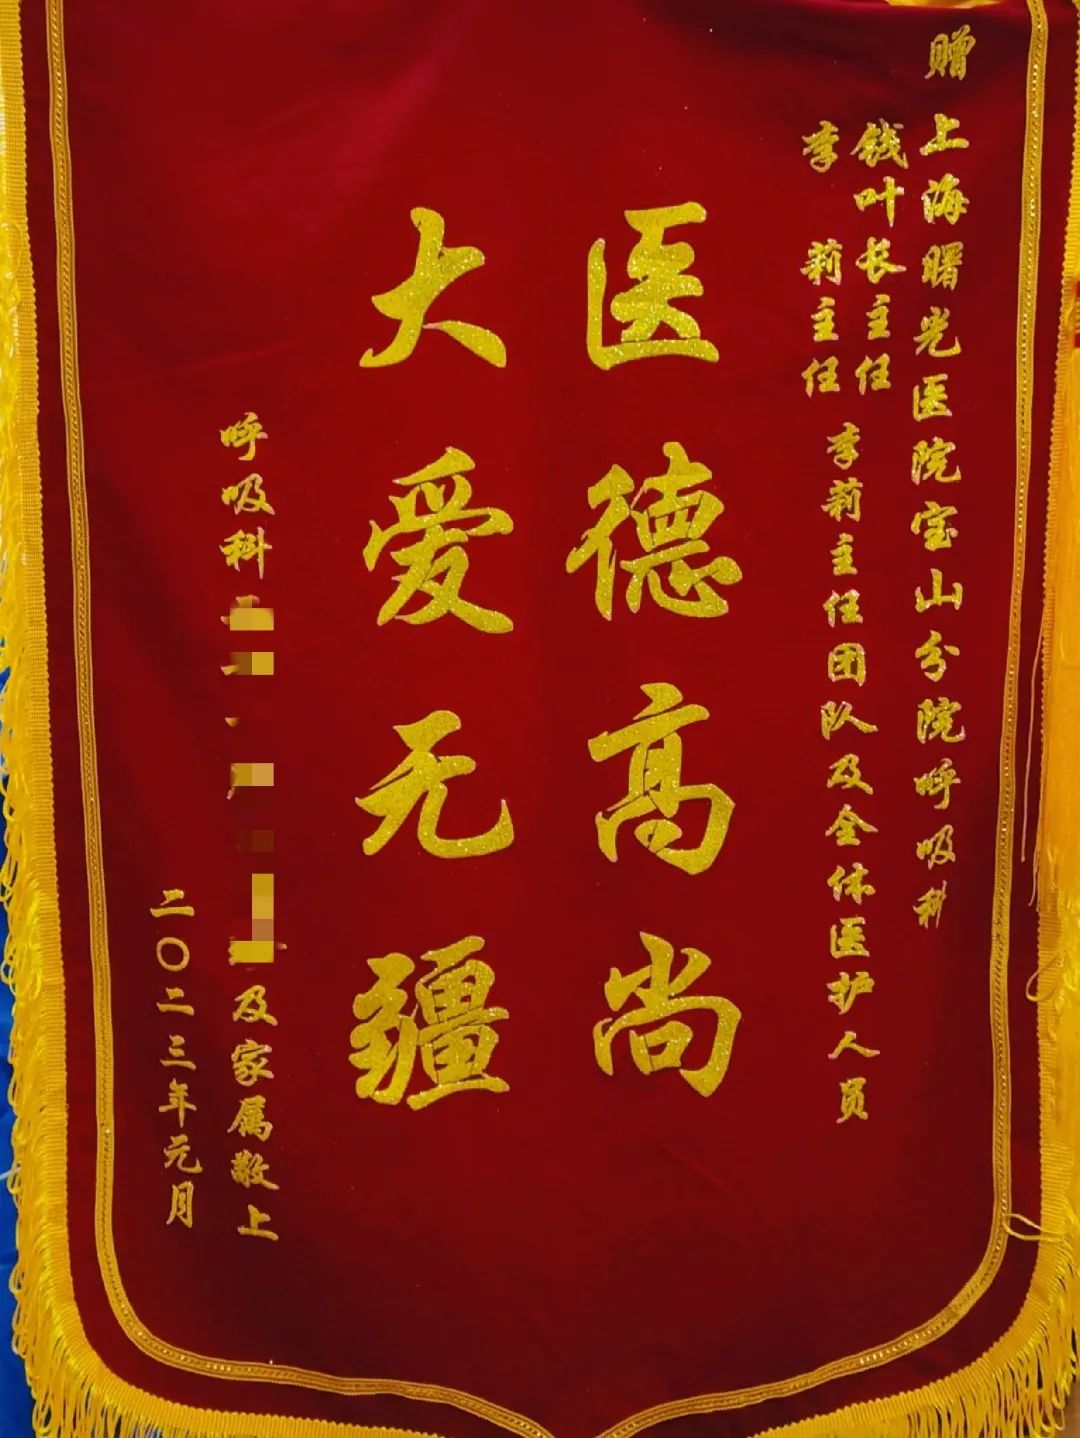 赠 上海曙光医院宝山分院呼吸科
钱叶长主任
李 莉主任
李莉主任团队及全体医护人员
医德高尚
大爱无疆
呼吸科
及家属敬上
二〇二三年元月